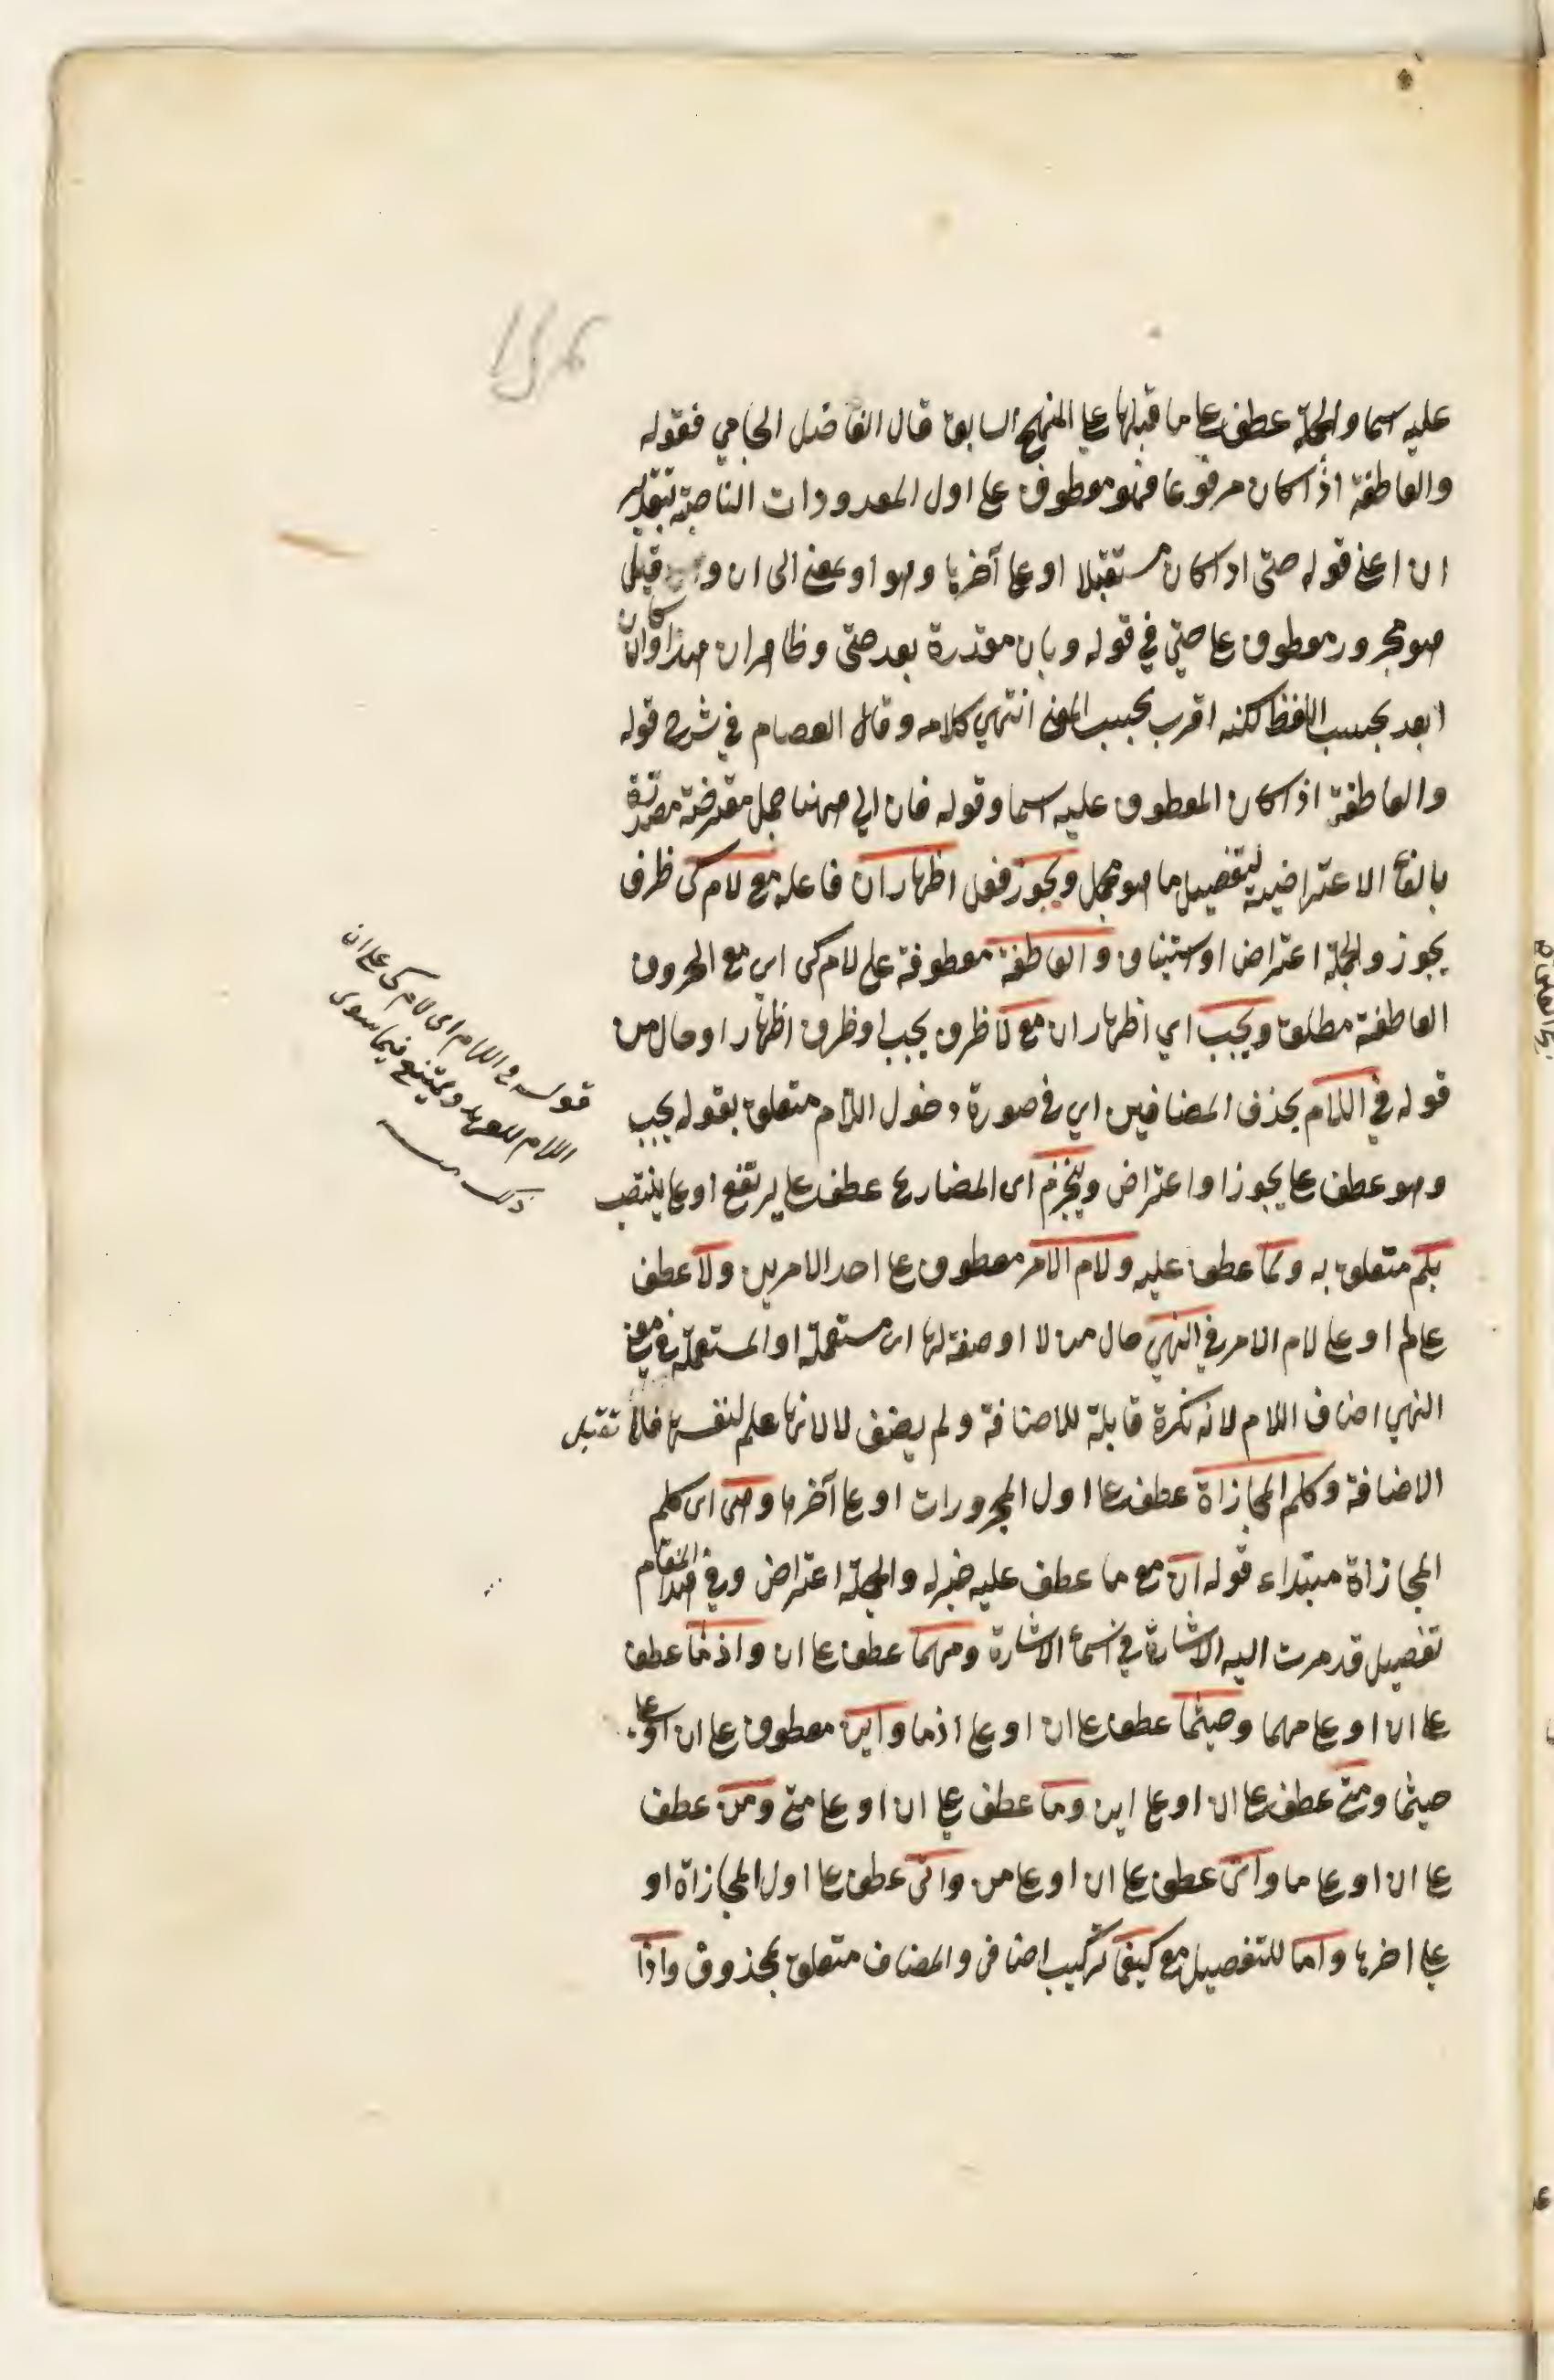 عليه اسما والجملة عطف على ما قبلها على المنهج السابق قال الفاضل الجامي فقوله
والعاطفة اذا كان مرفوعا فهو معطوف على اول المعدودات الناصبة بتقدير
ان اعني قوله حتى اذا كان مستقبلا او على آخرها وهو او بمعنى الى ان و قيل
هو مجرور معطوف على حتى في قوله وبان مقدرة بعد حتى وظاهر ان هذا وان كان
ابعد بحسب اللفظ لكنه اقرب بحسب المعنى انتهى كلامه وقال العصام في شرح قوله
والعاطفة اذا كان المعطوف عليه اسما وقوله فان الى ههنا جمل معترضة مصدرة
بالفاء الاعتراضية لتفصيل ما هو مجمل ويجوز فعل اظهار ان فاعله مع لام كى ظرف
يجوز والجملة اعتراض او استيناف والعاطفة معطوفة على لام كى اى مع الحروف
العاطفة مطلق ويجب اي اظهار ان مع لا ظرف يجب او ظرف اظهار او حال من
قوله في اللام بحذف المضافين اي في صورة دخول اللام متعلق بقوله يجب
وهو عطف على يجوز او اعتراض وينجزم اى المضارع عطف على يرتفع او على ينتصب
بلم متعلق به ولما عطف عليه ولام الامر معطوف على احد الامرين ولا عطف
على لم او على لام الامر في النهي حال من لا او صفة لها اى مستعملة او المستعملة في معنى
النهي اضاف اللام لانه نكرة قابلة للاضافة ولم يضف لا لانها علم لنفسها فلا تقبل
الاضافة وكلم المجازاة عطف على اول المجرورات او على آخرها وهى اى كلم
المجازاة مبتداء قوله ان مع ما عطف عليه خبره والجملة اعتراض وفي هذا المقام
تفصيل قد مرت اليه الاشارة في اسماء الاشارة ومهما عطف على ان واذما عطف
على ان او على مهما وحيثما عطف على ان او على اذما واين معطوف على ان او على
حيثما ومتى عطف على ان او على اين وما عطف على ان او على متى ومن عطف
على ان او على ما واى عطف على ان او على من وانى عطف على اول المجازاة او
على اخرها واما للتفصيل مع كيفما تركيب اضافى والمضاف متعلق بمحذوف واذا
قوله في اللام اى لام كى على ان
اللام للعهد ويمتنع فيما سوى
ذلك